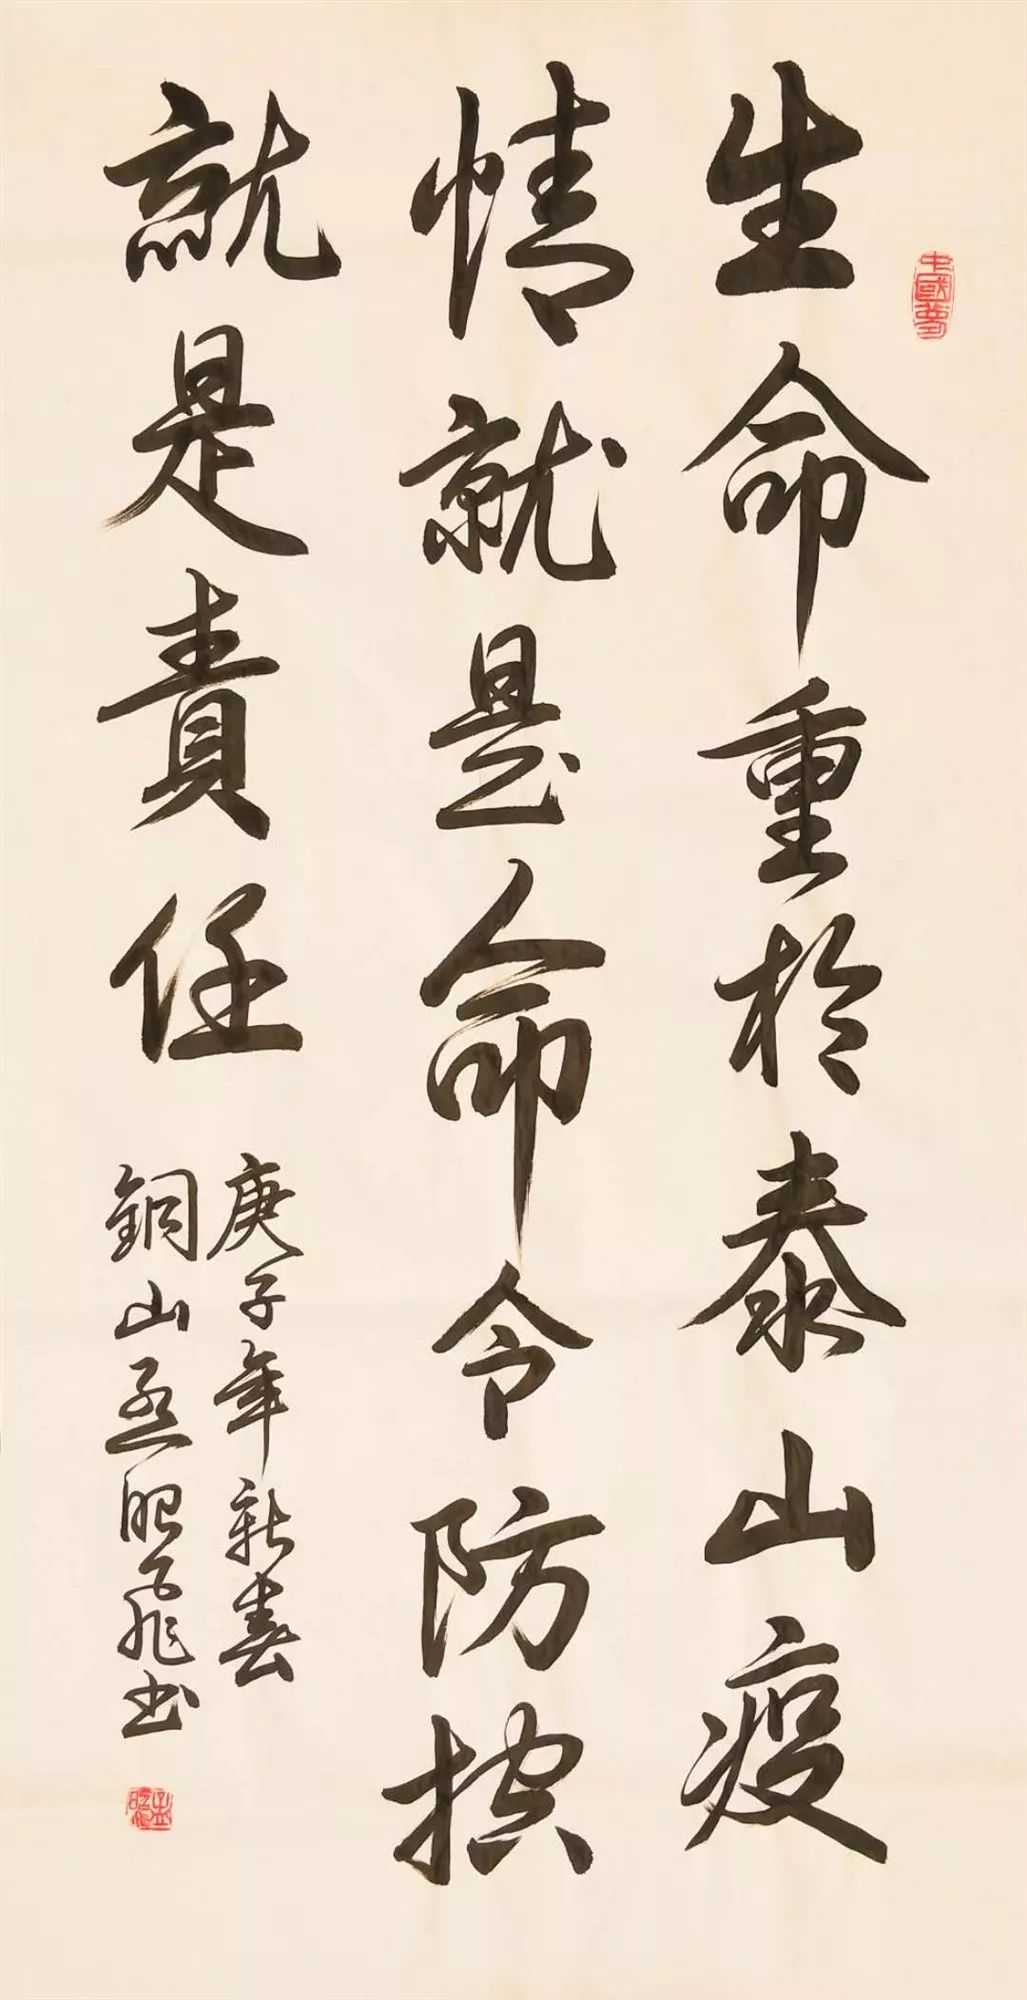 中國夢
生命重於泰山疫
情就是命令防控
就是責任
庚子年新春
銅山孟昭飛书